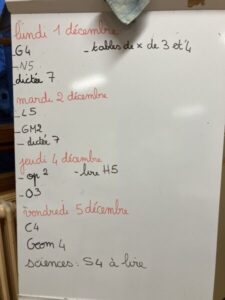 lundi 1 décembre
_G4 - tables de x de 3 et 4
_N5
dictée 7
mardi 2 décembre
_L5
_GM2
_ dictée 7
jeudi 4 décembre
_op 2 - lire H5
_O3
vendredi 5 décembre
C4
Geom 4
sciences : S4 à lire